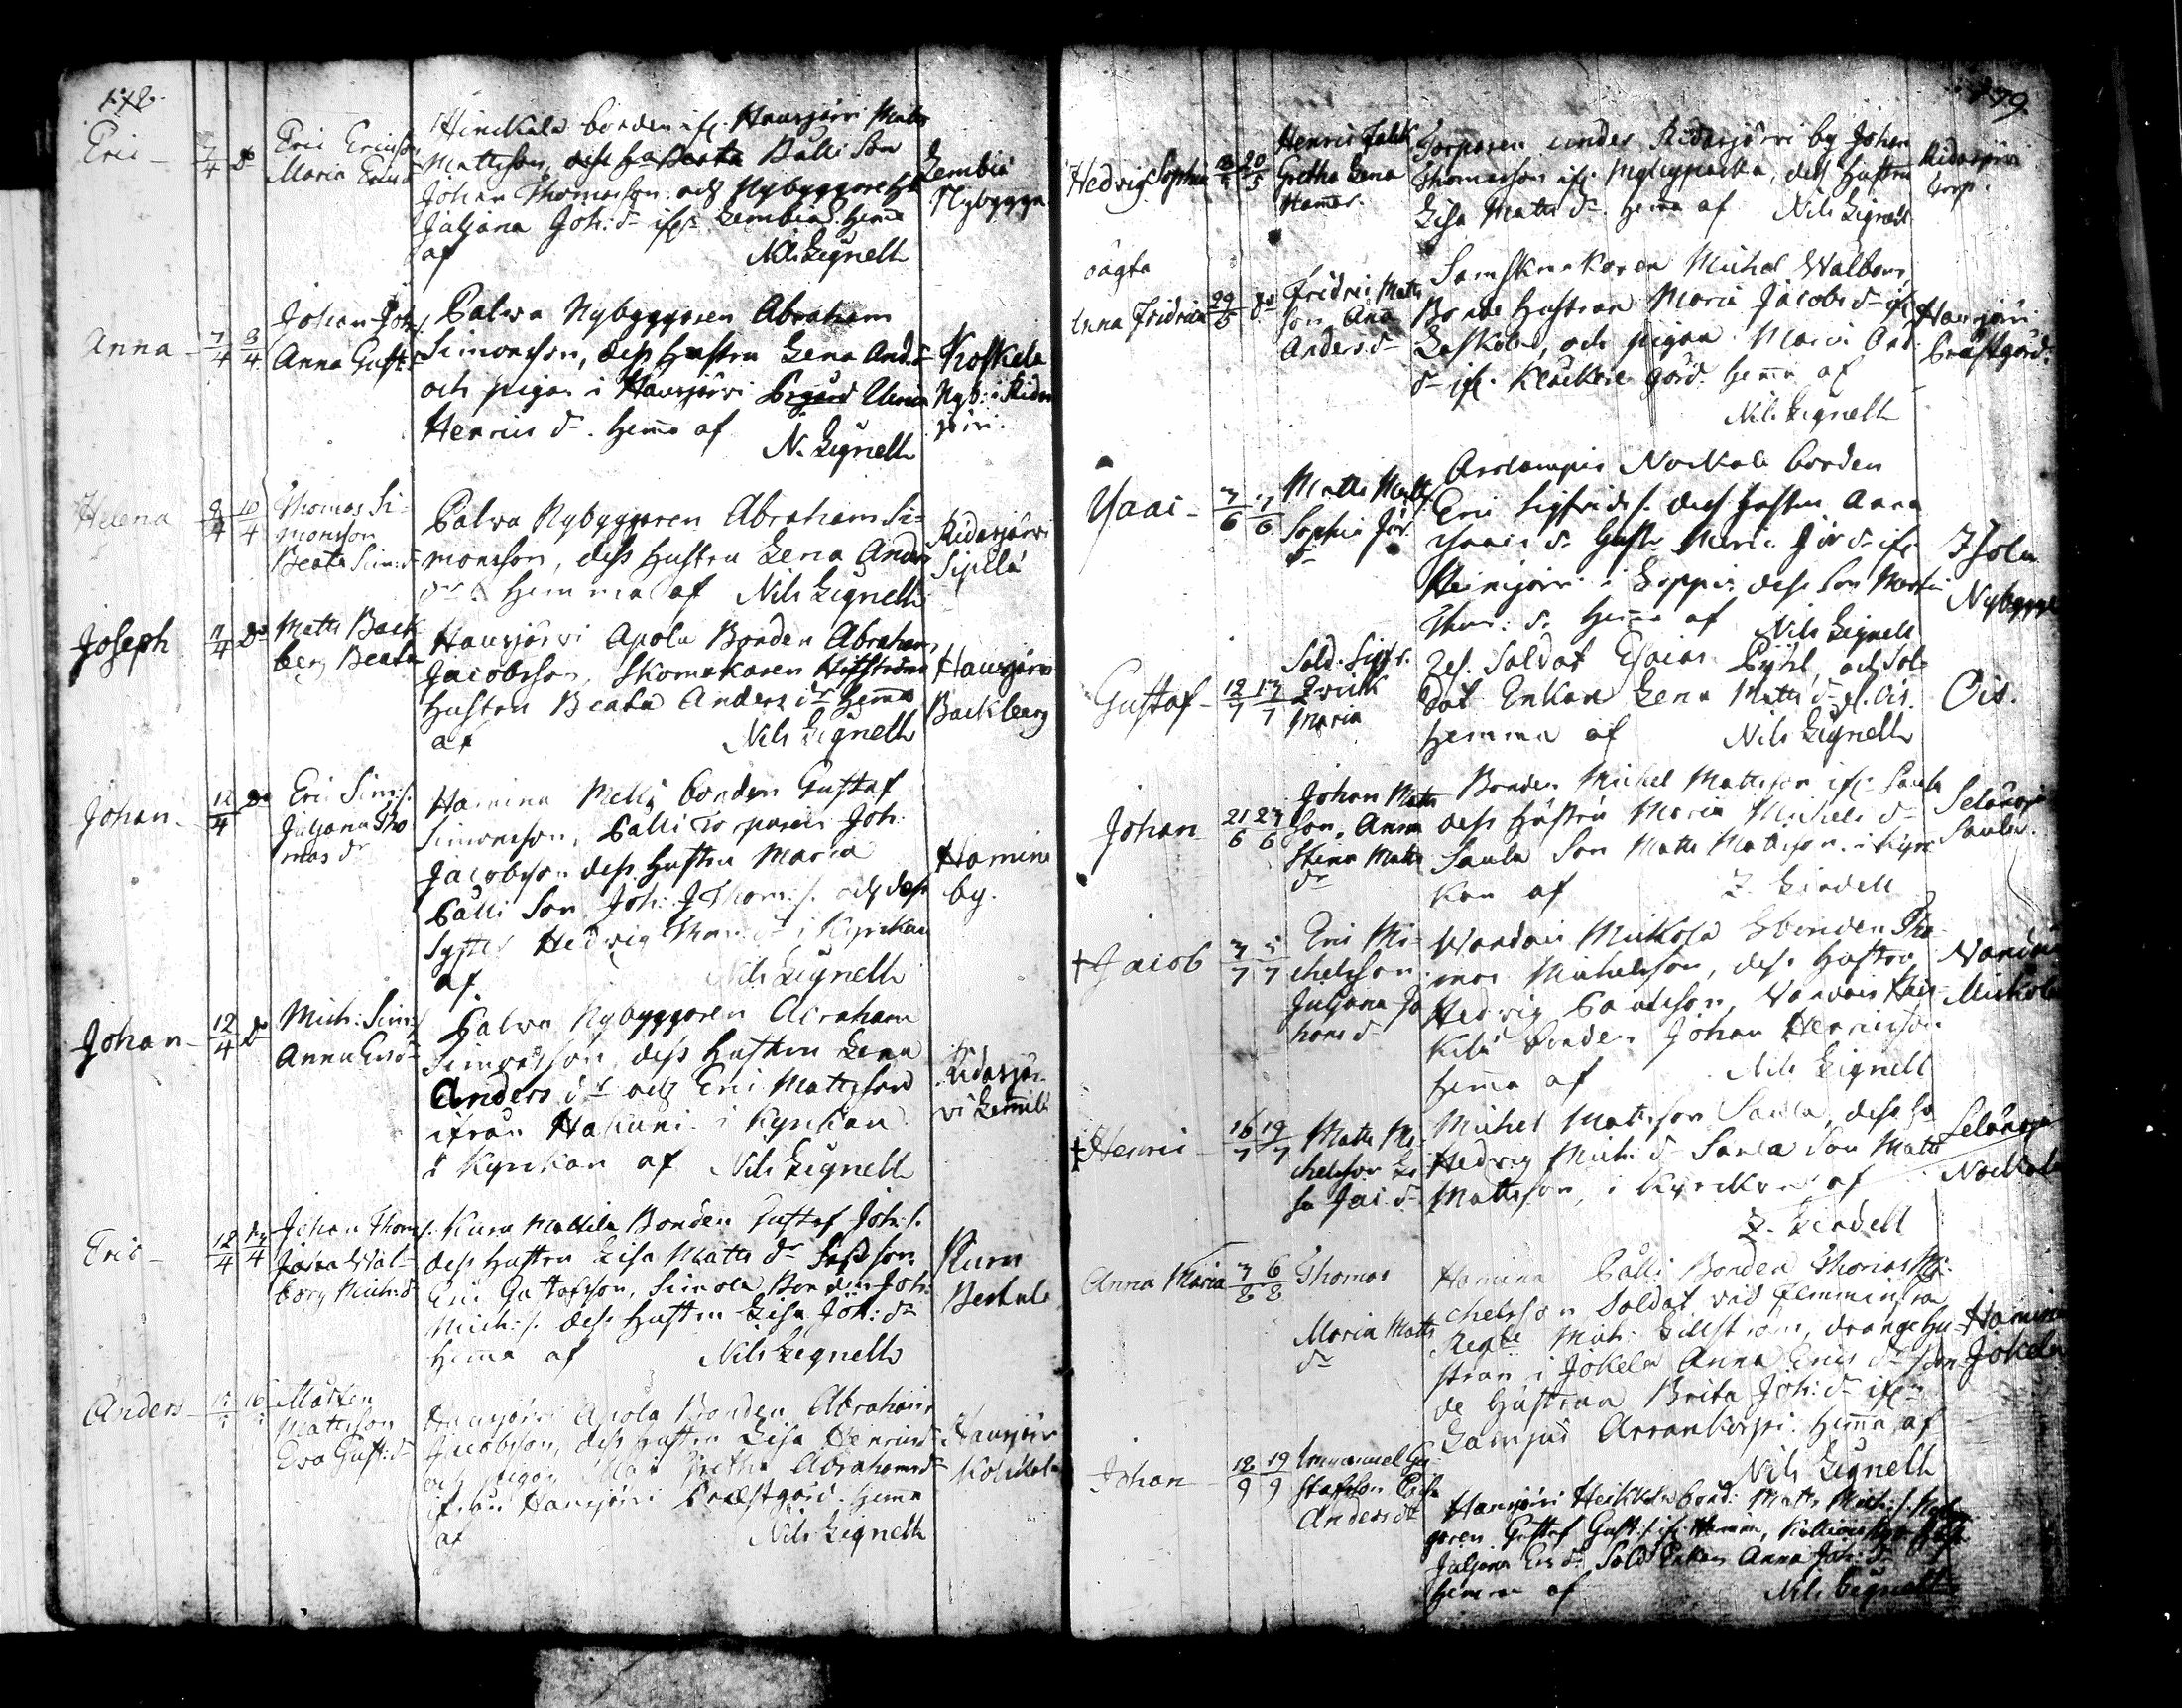 Eric - 7/4 do
Eric Ericsson
Maria Erics d
Hinckala bonden if. Hausjärvi Matts
Mattsson, dess Hu Beata Pälli Son
Johan Thomasson och Nybyggare Hu
Juljana Joh: dr if. Lembiä hema
af Nils Lignell
Lembiä
Nybygge
Anna - 7/4 8/4
Johan Joh: s.
Anna Gust: dr
Palwa Nybyggaren Abraham
Simonsson, dess Hustru Lena And: dr
och pigan i Hausjärvi Pgård Maria
Henrics dr. hema af N. Lignell
Koskela
Nyb: i Rida
järvi.
Helena 9/4 10/4
Thomas Si=
monsson
Beata Sim: dr
Palwa Nybyggaren Abraham Si=
monsson, dess Hustru Lena Anders
dr hemma af Nils Lignell
Ridasjärvi
Sipilä
Joseph 11/4 do
Matts Back
berg Beata
Hausjärvi Apola Bonden Abraham
Jacobsson, Skomakaren
Hustru Beata Anders dr hema
af Nils Lignell
Hausjärvi
Backberg
Johan - 12/4 do
Eric Sim: s.
Juljana Tho
mas dr
Hamina Mella bonden Gustaf
Simonsson, Palli Torparen Joh:
Jacobsson dess Hustru Maria
Pälli Son Joh: Thom: s. och dess
Syster Hedvig Thom: dr i Kyrckan
af Nils Lignell
Hamina
by.
Johan - 12/4 do
Mich: Sim: s
Anna Erics dr
Palwa Nybyggaren Abraham
Simonsson, dess Hustru Lena
Anders dr och Eric Mattsson
ifrån Hakuni i Kyrckan
i Kyrckan af Nils Lignell
Ridasjär
vi Lemilä
Eric - 12/4 17/4
Johan Thom: s.
Wal-
borg Mich: dr
Kuru Mattila Bonden Gustaf Joh: s.
dess Hustru Lisa Matts dr Dess son
Eric Gustafsson, Simola Bonden Joh:
Mich: s. dess Hustru Lisa Joh: dr
hema af Nils Lignell
Kuru
Bertula
Anders -
Mårten
Mattsson
Eva Gust: dr
Hausjärvi Apola Bonden Abraham
Jacobsson, dess Hustru Lisa Henrics dr
och pigan Maj Gretha Abrahams dr
ifrån Hausjärvi Præstgård. hema
af Nils Lignell
Hausjärvi
Kolckala
179.
Hedvig Sophia 18/5 20/5
Henric Falck
Gretha Lena
Hamar.
Torparen under Ridasjärvi by Johan
Thomasson if. Myllypacka, dess Hustru
Lisa Matts dr. hema af Nils Lignell
Ridasjärvi
torp.
oägta
Anna Fridrica 29/5 do
Fridric Matts
son Ana
Anders dr
Samskmakaren Michel Walborg
Bonde Hustrun Maria Jacobs dr if.
Laskola, och pigan Maria And:
dr if. Klåckare gård. hema af
Nils Lignell
Hausjärvi
Præstgård.
Ysaac - 7/6 17/6
Matts Matts s.
Sophia Jör.
dr
Arolampi Nockala bonden
Eric Sigfrids s. dess Hustru Anna
Isaacs dr Gust. Maria Jör dr if.
Heinjärvi i Loppis dess Son
Thom: s. hema af Nils Lignell
Isola
Nybygge
Gustaf - 12/7 17/7
Sold. Sigf: s.
Qvick
Maria
Res. Soldat Esaias Pyhl, och Sol-
dat Enkan Lena Matts dr if. Ois.
hemma af Nils Lignell
Ois.
Johan 21/6 27/6
Johan Matts
son, Anna
Stina Matts
dr
Bonden Michel Mattsson if. Saula
dess Hustru Maria Michels dr
Saula Son Matts Mattsson i kyrc
kan af Z. Lindell
Selänoja
Saula.
† Jacob 3/7 5/7
Eric Mi=
chelsson
Juljana Jo
hans dr
Wandais Mickola Lbonden Tho-
mas Michelsson, dess Hustru
Hedvig Paulsson, Vandais Hei-
kilä Bonden Johan Henricsson
hema af Nils Lignell
Vandais
Mickola
† Henric - 16/7 19/7
Matts Mi-
chelsson Li-
sa Jac: dr
Michel Mattsson Saula, dess Hu
Hedvig Mich: dr Saula Son Matts
Mattsson, i Kyrckan af
Z. Lindell
Selänoja
Nockala
Anna Maria 3/8 6/8
Thomas
Maria Matts
dr
Hamina Pälli Bonden Thomas Mi-
chelsson Soldat vid Flemmingska
Regte Mich: Lillström, dränge Hu-
strun i Jokela Anna Erics dr Bon-
de Hustrun Brita Joh: dr ifrn
Lampis Arrankorpi. hema af
Nils Lignell
Hamina
Jokela
Johan 12/9 19/9
Immanuel Gu
stafsson Lisa
Anders dr
Hausjärvi Heickila bond: Matts Mich: s.
garen Gustaf Gust: s. if. Hamina,
Juljana Erics dr Sold Enkan Anna Joh: dr
hemma af Nils Lignell